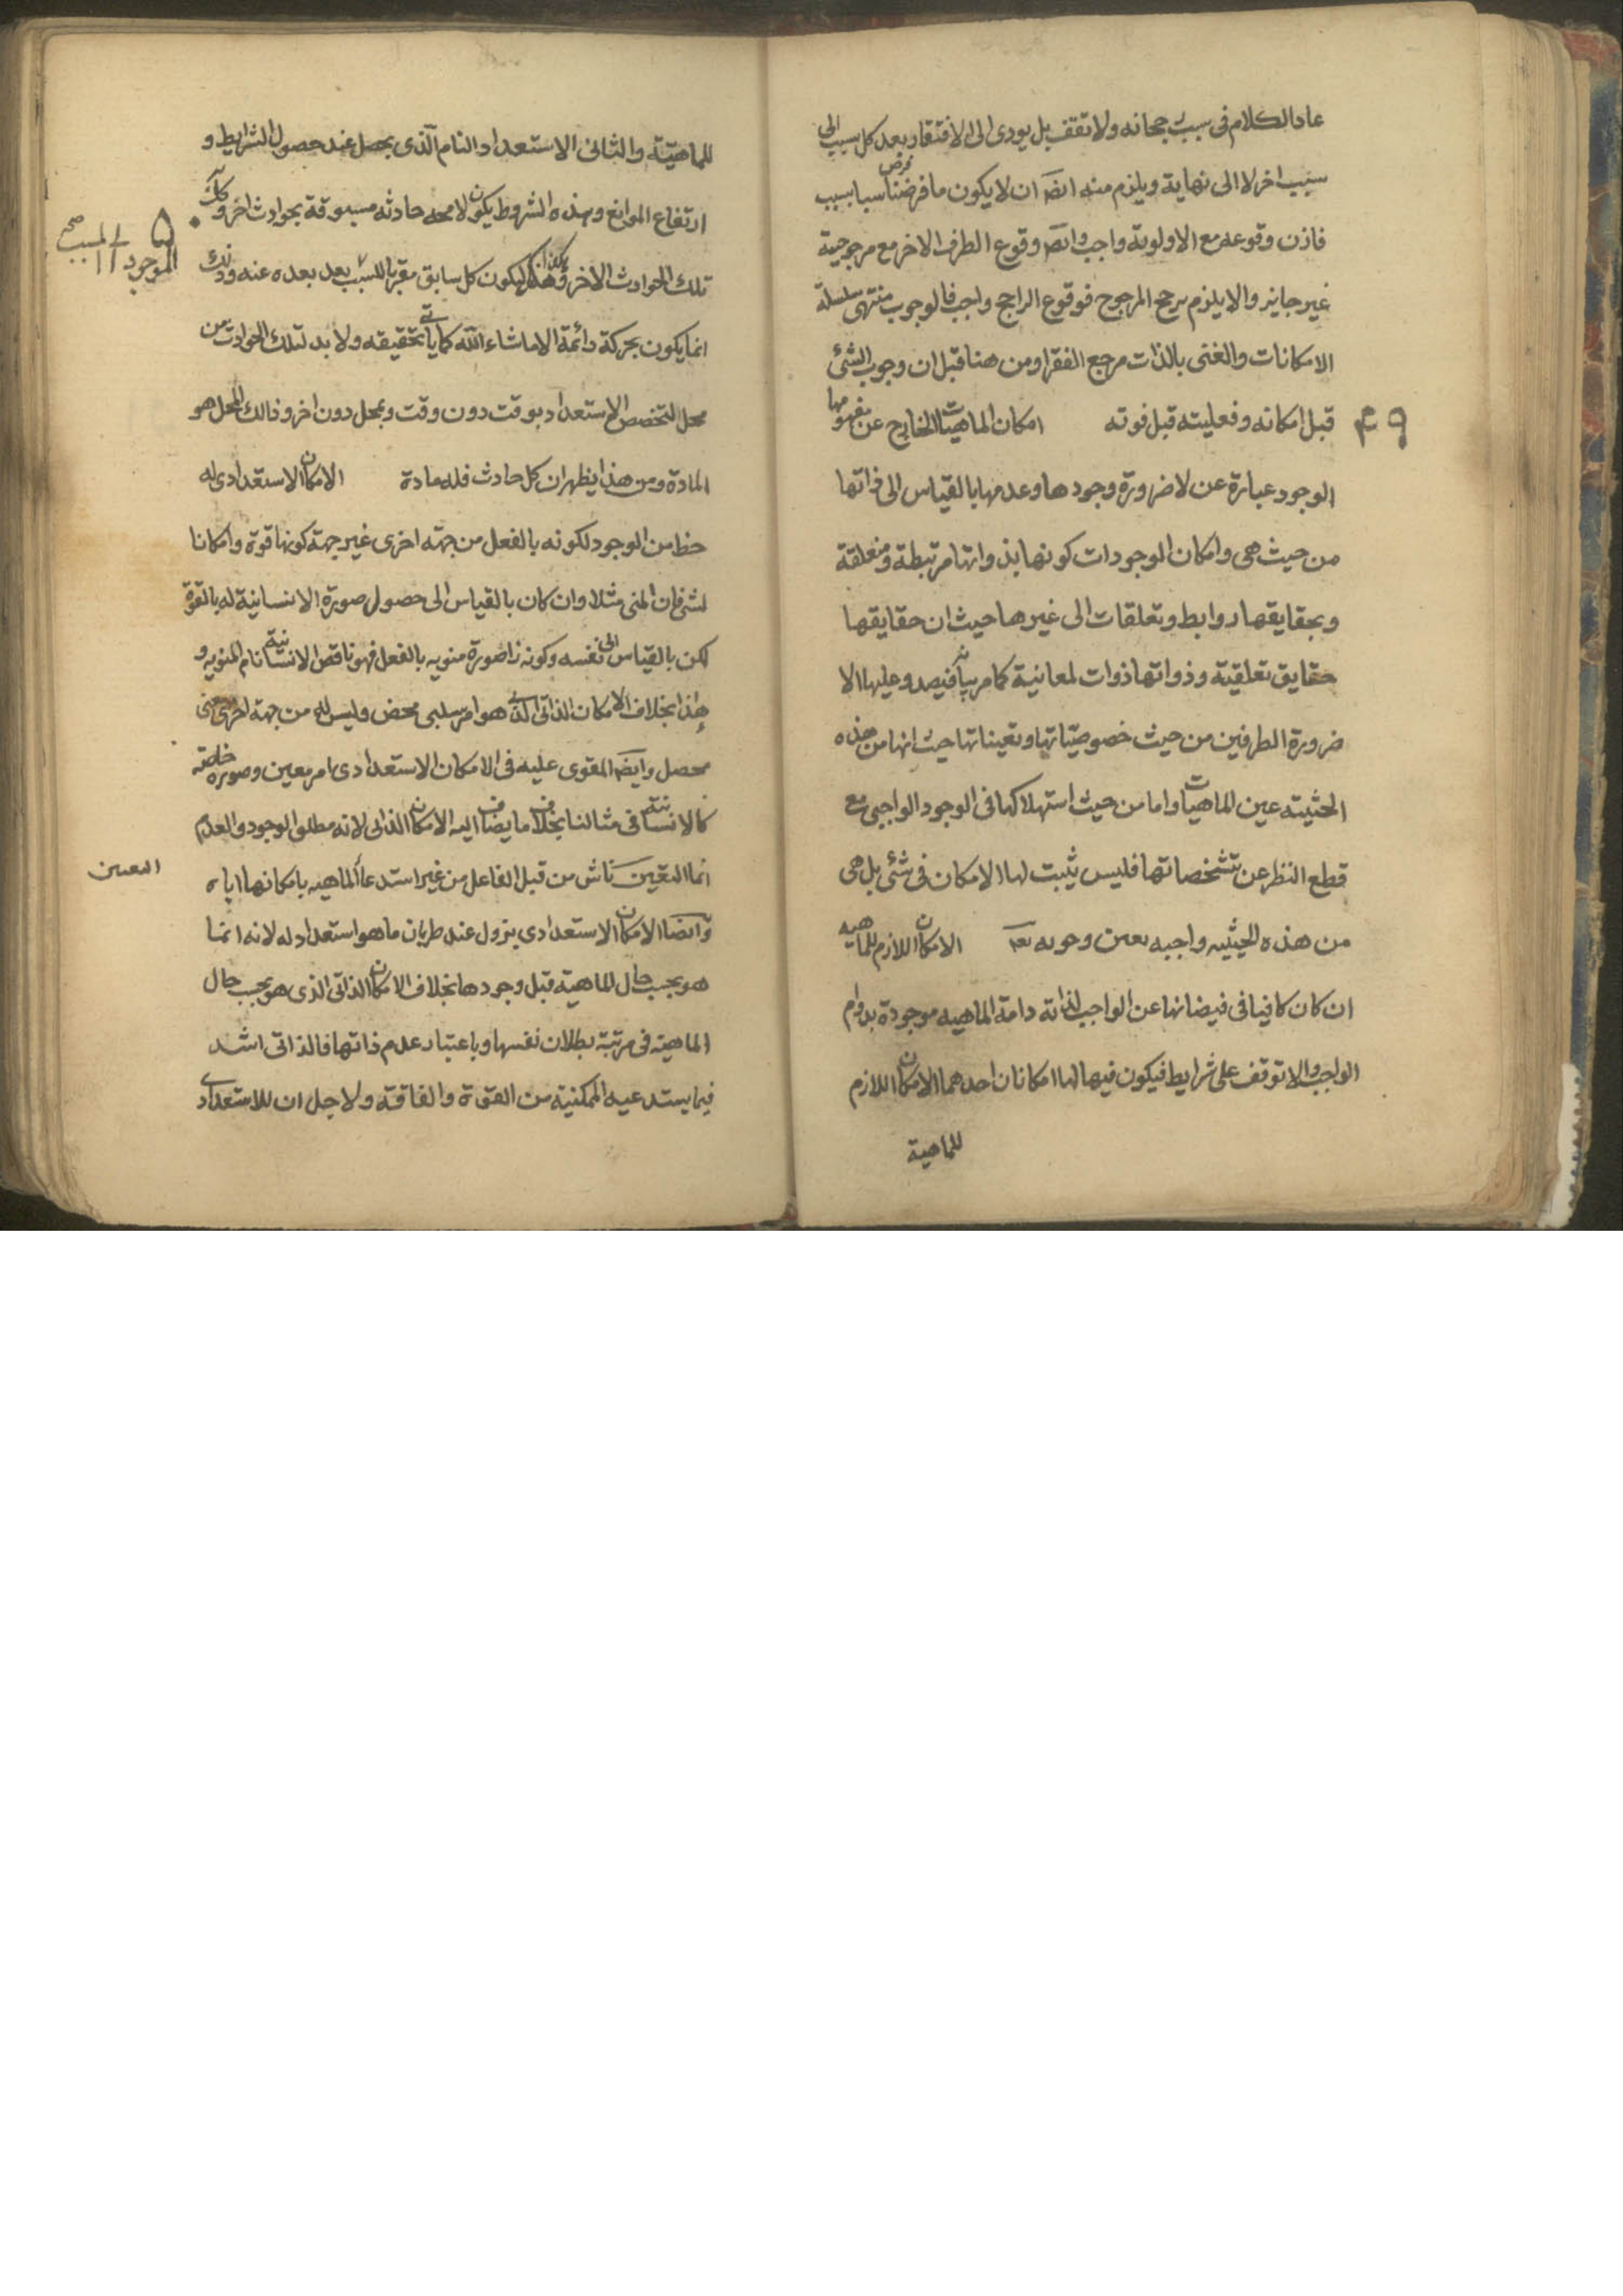 عاد الكلام فى سبب رجحانه ولا تقف بل يودى الى الافتقار بعد كل سبب الى
سبب اخر لا الى نهاية ويلزم منه ايضا ان لا يكون ما فرضنا سببا بسبب
فاذن وقوعه مع الاولوية واجب وايضا وقوع الطرف الاخر مع مرجوحية
غير جايز والا يلزم ترجح المرجوح فوقوع الراجح واجب فالوجوب منتهى سلسلة
الامكانات والغنى بالذات مرجع الفقرا ومن هنا قيل ان وجوب الشئ
قبل امكانه وفعليته قبل قوته امكان الماهيات الخارج عن مفهومها
الوجود عبارة عن لا ضرورة وجودها وعدمها بالقياس الى ذاتها
من حيث هى وامكان الوجودات كونها بذواتها مرتبطة ومتعلقة
وبحقايقها روابط وتعلقات الى غيرها حيث ان حقايقها
حقايق تعلقية وذواتها ذوات لمعانية كما مر بيانه فيصدق عليها لا
ضرورة الطرفين من حيث خصوصياتها وتعيناتها حيث انها من هذه
الحثيته عين الماهيات واما من حيث استهلاكها فى الوجود الواجبى مع
قطع النظر عن تشخصاتها فليس يثبت لها الامكان فى شئ بل هى
من هذه الحيثيه واجبه بعين وجوبه تعا الامكان اللازم للماهيه
ان كان كافيا فى فيضانها عن الواجب لذاته دامة الماهيه موجودة بدوام
الواجب والا توقف على شرايط فيكون فيها لها امكانان احدهما الامكان اللازم
للماهية
للماهيّة والثانى الاستعداد التام الّذى يحصل عند حصول الشرايط و
ارتفاع الموانع وهذه الشروط يكون لا محه حادثه مسبوقة بحوادث اخر وكك
تلك الحوادث الاخر وهكذا ليكون كل سابق مقربا للسبب بعد بعده عنه وذلك
الموجود الى المسبب صح
انما يكون بحركة دائمة الا ما شاء الله كما ياتى تحقيقه ولا بد لتلك الحوادث من
محل لتخصص الاستعداد بوقت دون وقت وبمحل دون اخر وذالك المحل هو
المادة ومن هذا يظهر ان كل حادث فله مادة الامكان الاستعدادى له
حظ من الوجود لكونه بالفعل من جهة اخرى غير جهة كونها قوة وامكانا
لشئ فان المنى مثلا وان كان بالقياس الى حصول صورة الانسانية له بالقوة
لكن بالقياس الى نفسه وكونه ذا صورة منويه بالفعل فهو ناقص الانسانيّة تام المنويه و
هذا بخلاف الامكان الذاتى الذى هو امر سلبى محض وليس له من جهة اخرى معنى
محصل وايضا المقوى عليه فى الامكان الاستعدادى امر معين وصورة خاصّه
كالانسانيّة فى مثالنا بخلاف ما يضاف اليه الامكان الذاتى لانه مطلق الوجود والعدم
انما التعّين ناش من قبل الفاعل من غير استدعا الماهيه بامكانها اياه
التعيين
وايضا الامكان الاستعدادى يزول عند طريان ما هو استعداد له لانه انما
هو بحسب حال الماهيّة قبل وجودها بخلاف الامكان الذاتى الذى هو بحسب حال
الماهيّة فى مرتبة بطلان نفسها وباعتبار عدم ذاتها فالذاتى اشد
فيما يستدعيه الممكنية من القوة والفاقة ولاجل ان للاستعدادى